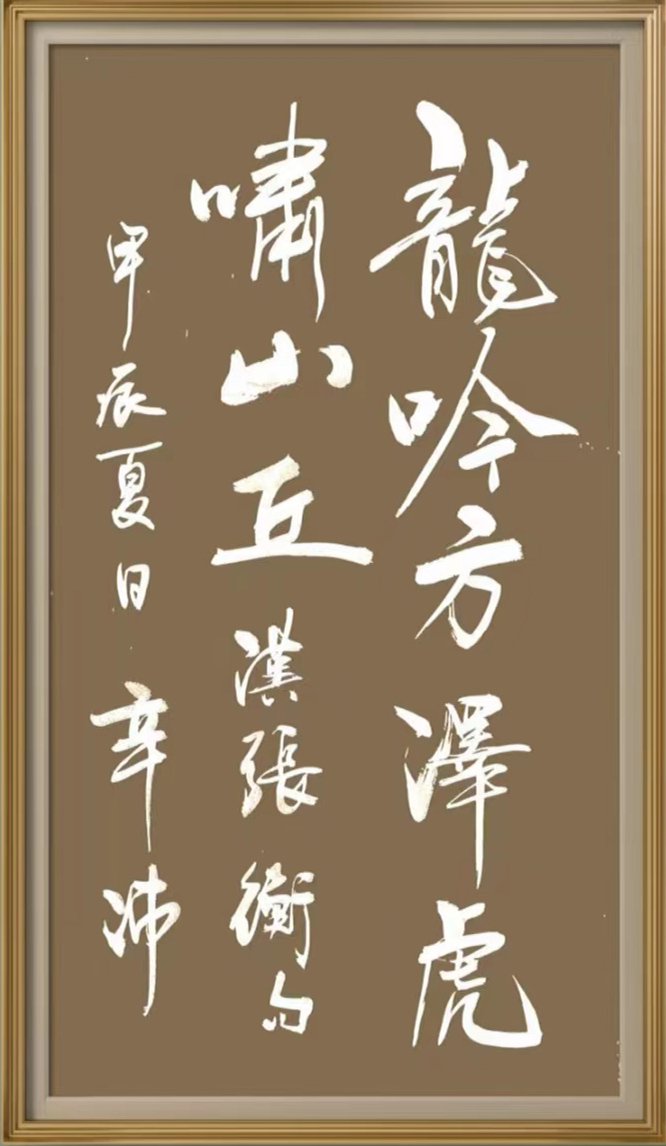 龍吟方澤虎
嘯山丘漢張衡句
甲辰夏日辛沛